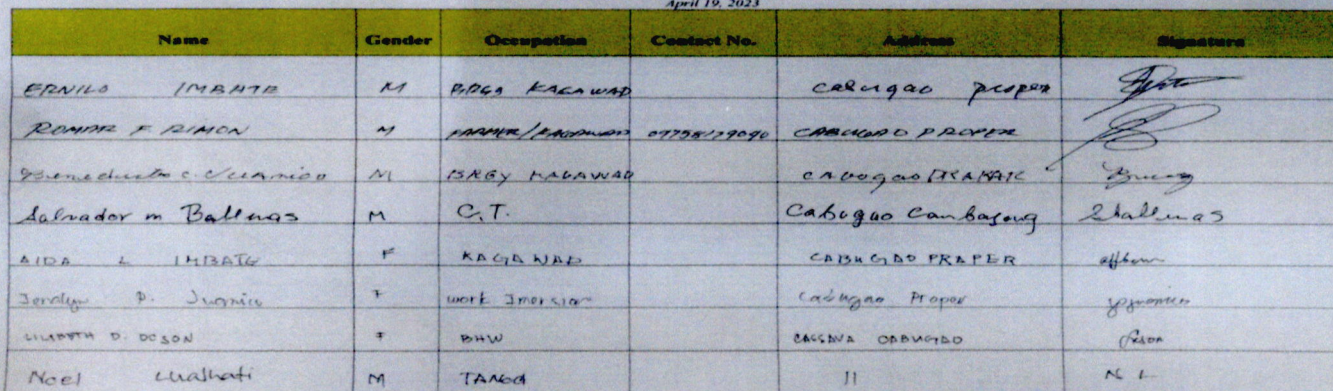 April 19, 2023
Name Gender Occupation Contact No. Address Signature
ERNILO IMBATE M BRGY KAGAWAD cabugao proper
ROMAR F. RIMON M FARMER/KAGAWAD 09758179090 CABUGAO PROPER
M BRGY KAGAWAD cabugao
Salvador m Ballenas M C.T. Cabugao Canbagong Sballenas
AIDA L IMBATE F KAGAWAD CABUGAO PRAPER
Jeralyn P. Juanico F work Imersion Cabugao Proper
LILIBETH D. DOSON F BHW CASSAVA CABUGAO
Noel Lualhati M TANOD 11 N L